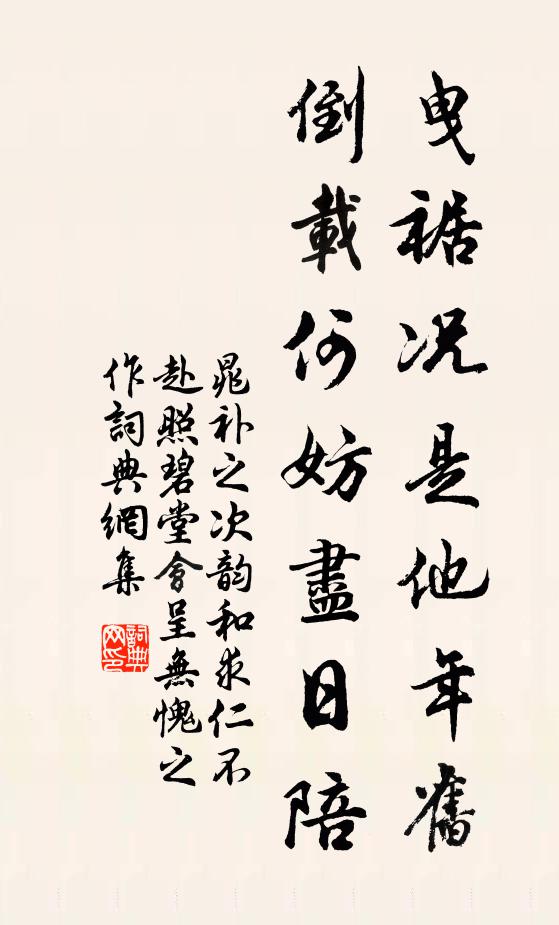 曳裾況是他年舊
倒載何妨盡日陪
晁補之次韵和求仁不
赴照碧堂會呈無愧之
作詞典網集
詞典網印